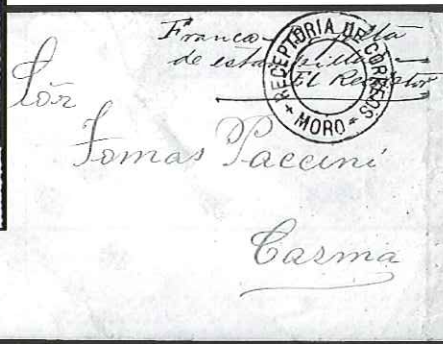 Franco
de
El Receptor
RECEPTORIA DE CORREOS
+ MORO +
Sōr
Tomas Paccini
Casma